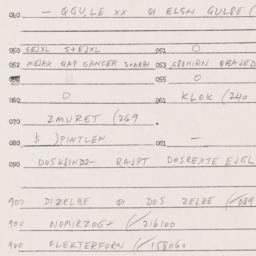 040 — QGULE XX QI ELSN GULBE (
050 SEJXL S+EJXL 051 O
052 MEJAX QAP GANGER S+ARBN 053
O 055 O
060 O 061 KLOK (240
070 ZMURET (269
080 $ )PINTLEN 081 —
090 DOSKBINDZ- RAJPT DOSREXTE EJGL
900 DIZELBE QI DOS ZELBE (/089
900 NOMIRZOG+ (/216100
900 FLEKTERFORN (/158060